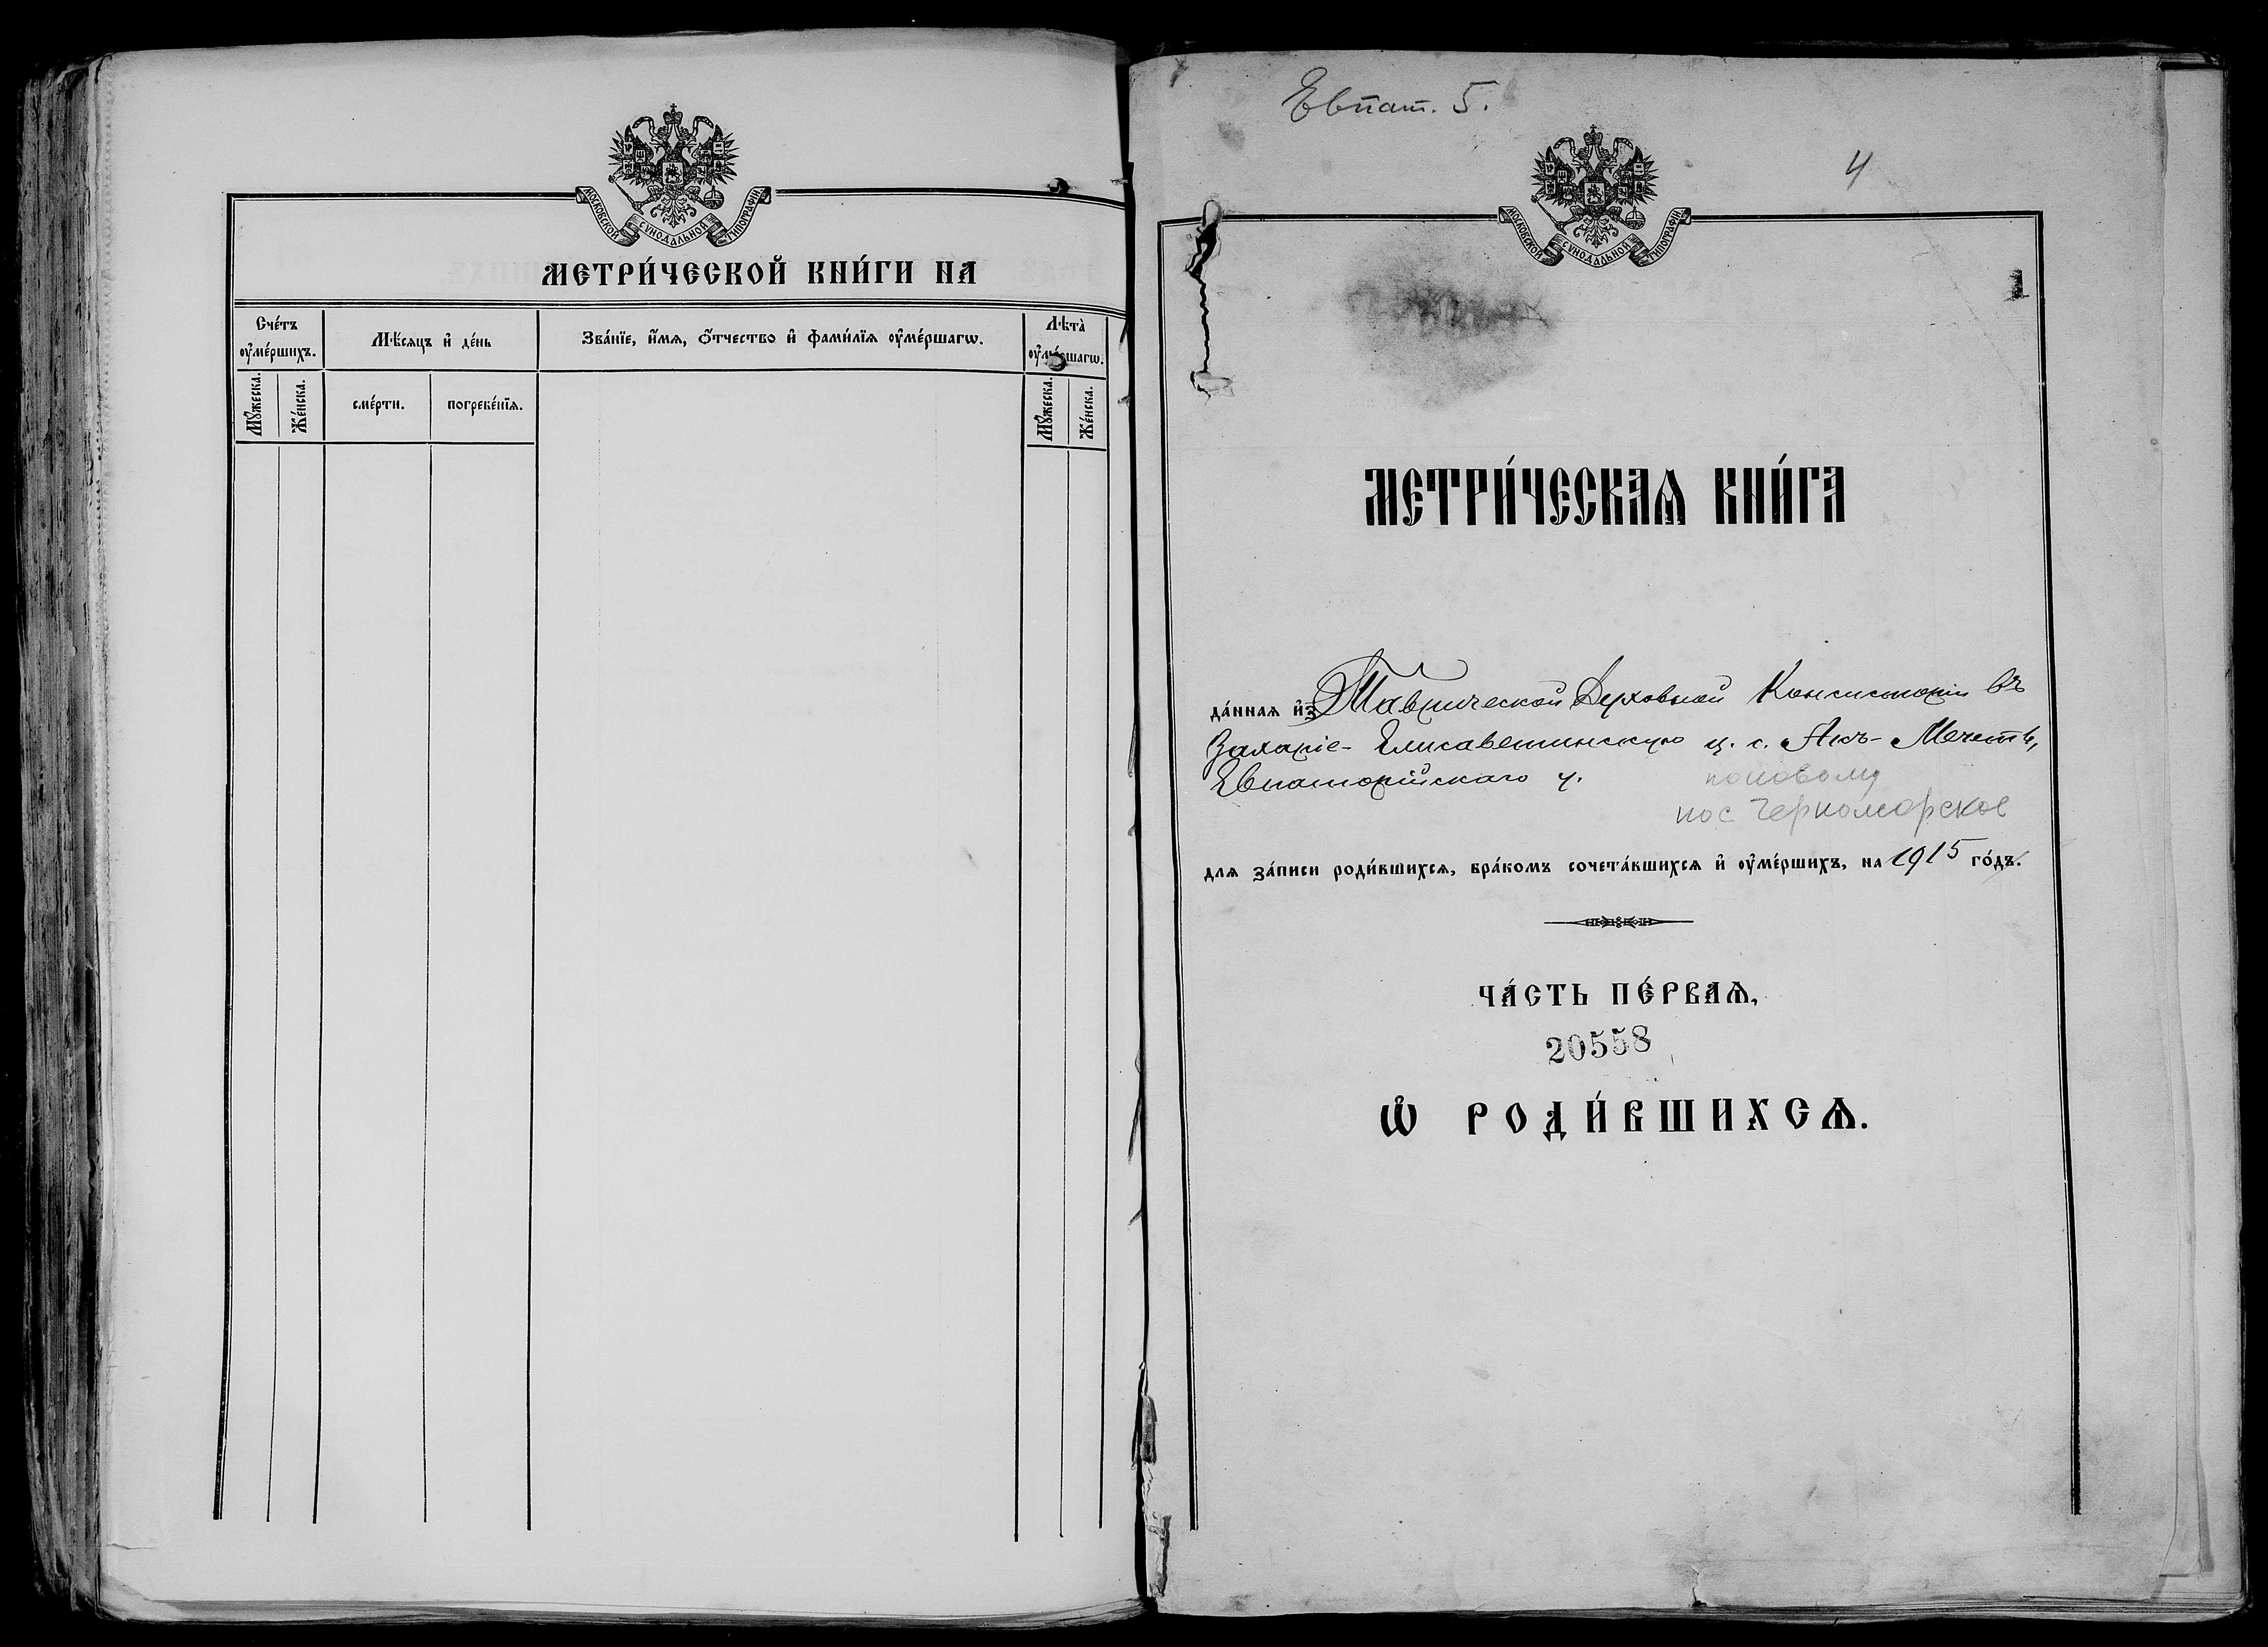 МОСКОВСКОЙ СѴНОДАЛЬНОЙ ТИПОГРАФІИ.
МЕТРИ́ЧЕСКОЙ КНИ́ГИ НА
Сче́тъ оу҆ме́ршихъ.
Мѣ́сяцъ и҆ де́нь
Зва́нїе, и҆́мѧ, ѻ҆́тчество и҆ фами́лїѧ оу҆ме́ршагѡ.
Лѣ́та̀ оу҆ме́ршагѡ.
Мꙋ́жеска.
Же́нска.
сме́рти.
погребе́нїѧ.
Мꙋ́жеска.
Же́нска.
Евпат. 5.
4
МОСКОВСКОЙ СѴНОДАЛЬНОЙ ТИПОГРАФІИ.
1
МЕТРИ́ЧЕСКАѦ КНИ́ГА
да́ннаѧ и҆з̾ Таврической Духовной Консисторіи въ
Захаріе-Елисаветинскую ц. с. Акъ-Мечеть,
Евпаторійскаго у.
поновому
пос. Черноморское
длѧ за́писи роди́вшихсѧ, бра́комъ сочета́вшихсѧ и҆ оу҆ме́ршихъ, на 1915 го́дъ.
ЧА́СТЬ ПЕ́РВАѦ,
20558
Ѡ҆ РОДИ́ВШИХСѦ.